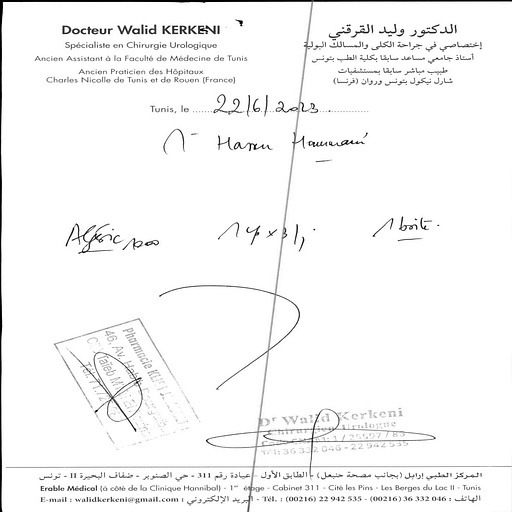 Docteur Walid KERKENI
Spécialiste en Chirurgie Urologique
Ancien Assistant à la Faculté de Médecine de Tunis
Ancien Praticien des Hôpitaux
Charles Nicolle de Tunis et de Rouen (France)
الدكتور وليد القرقني
إختصاصي في جراحة الكلى والمسالك البولية
أستاذ جامعي مساعد سابقا بكلية الطب بتونس
طبيب مباشر سابقا بمستشفيات
شارل نيكول بتونس وروان (فرنسا)
Tunis, le 22/6/2023
1 boîte.
Pharmacie
46, Av.
Taieb
Dr Walid Kerkeni
Chirurgien Urologue
المركز الطبي إرابل (بجانب مصحة حنبعل) - الطابق الأول - عيادة رقم 311 - حي الصنوبر - ضفاف البحيرة II - تونس
Erable Médical (à côté de la Clinique Hannibal) - 1er étage - Cabinet 311 - Cité les Pins - Les Berges du Lac II - Tunis
E-mail : walidkerkeni@gmail.com : البريد الإلكتروني - Tél. : (00216) 22 942 535 - (00216) 36 332 046 : الهاتف